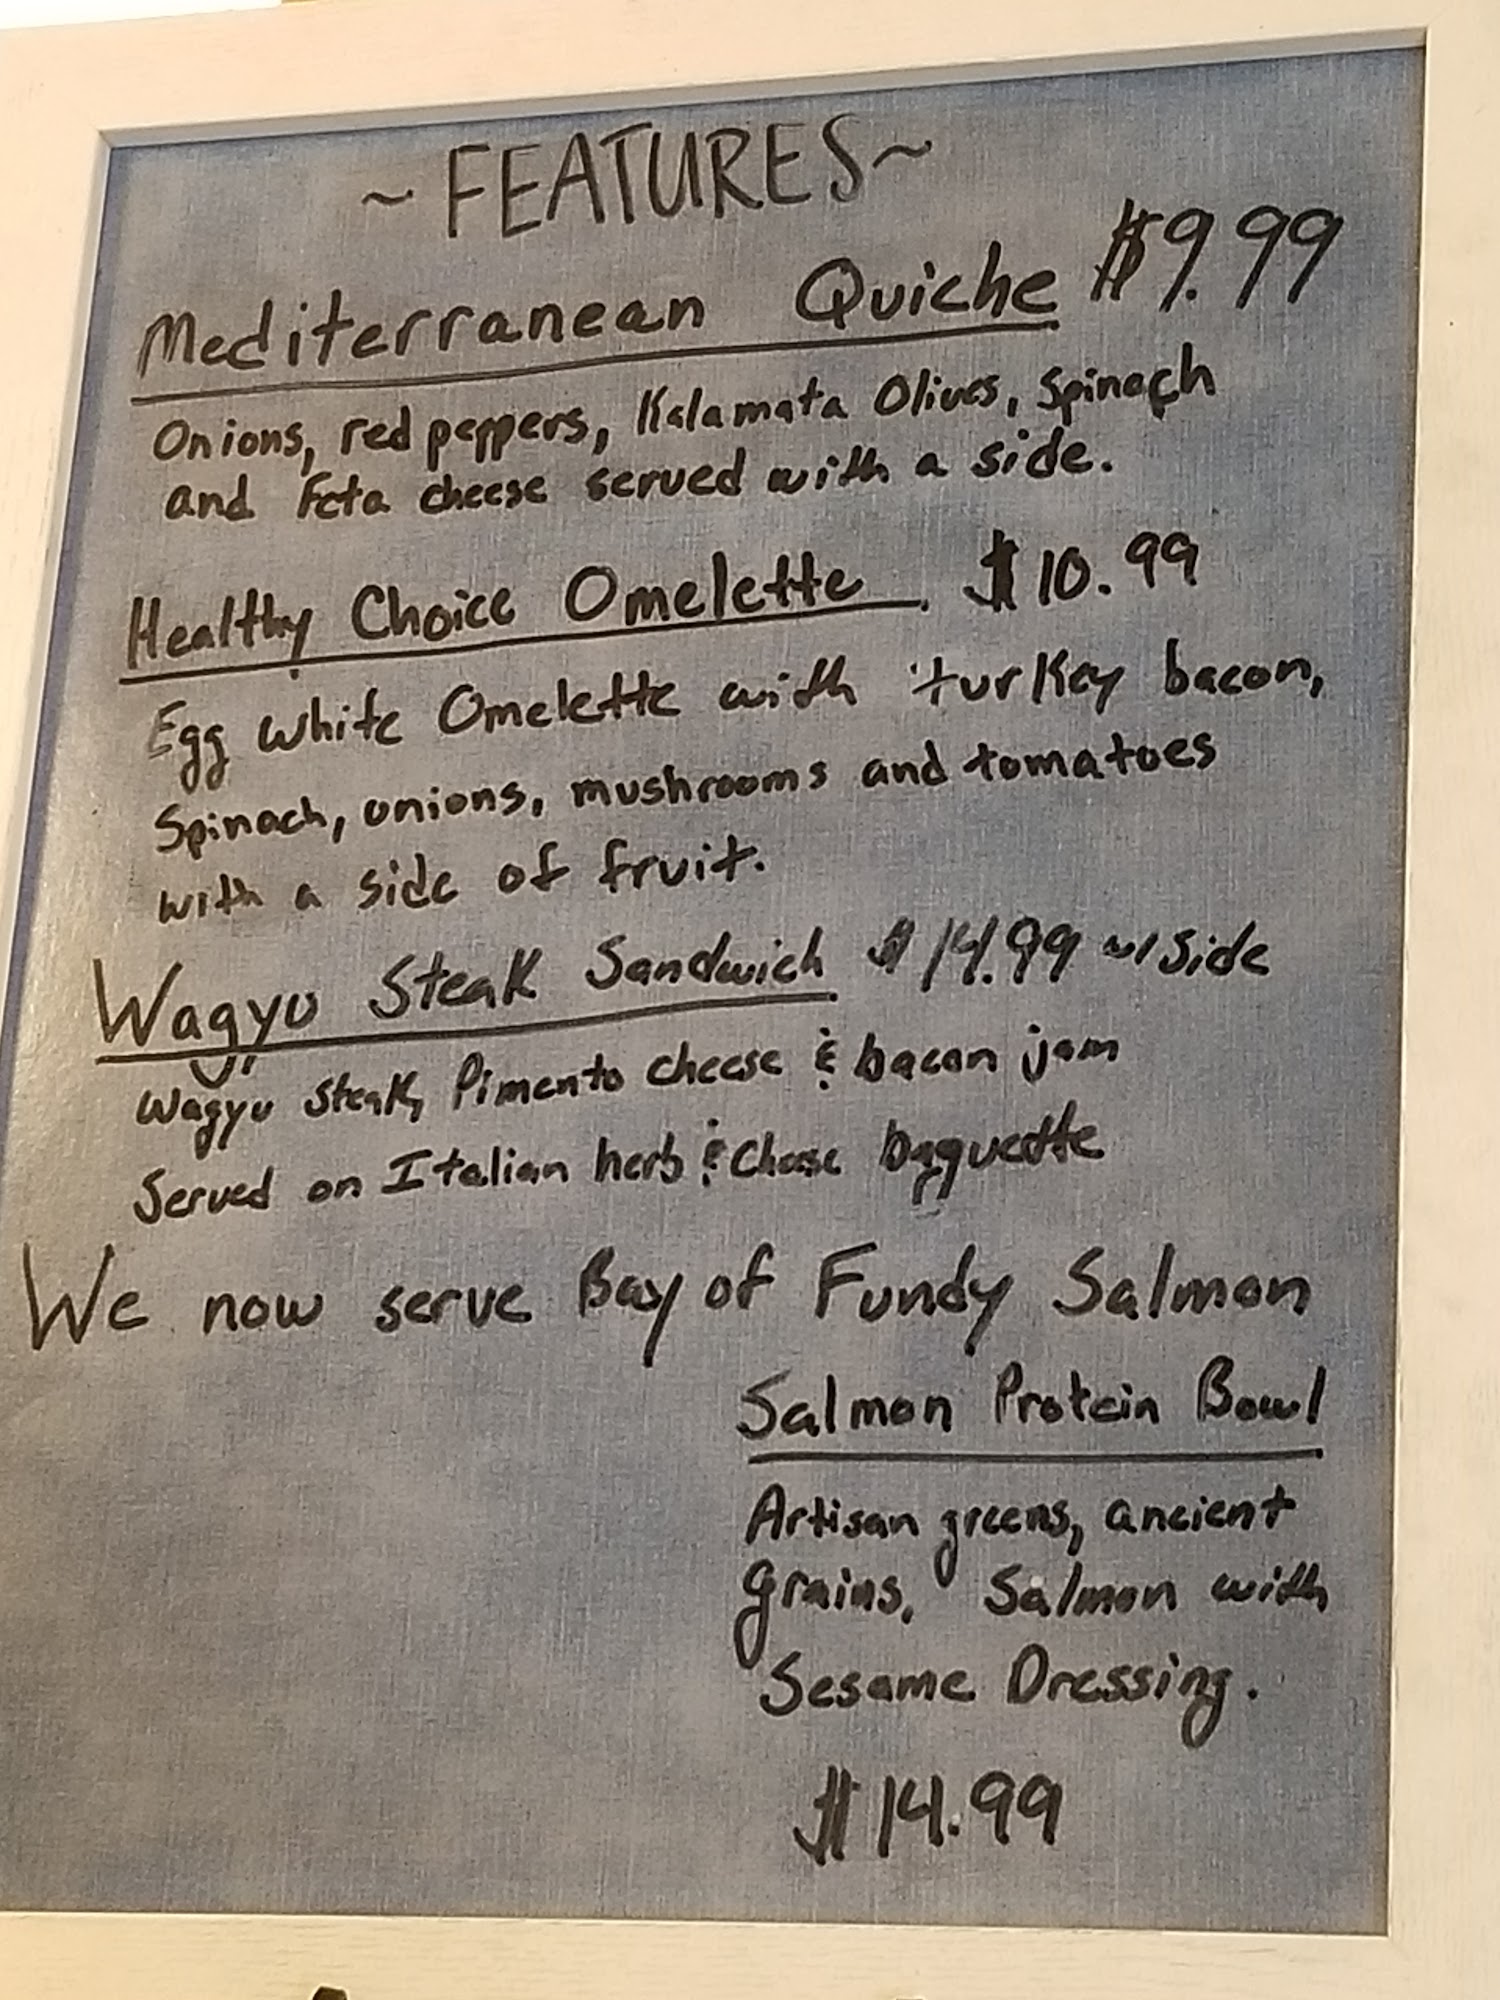 ~ FEATURES ~
Mediterranean Quiche $9.99
Onions, red peppers, Kalamata Olives, Spinach
and Feta cheese served with a side.
Healthy Choice Omelette $10.99
Egg white Omelette with turkey bacon,
Spinach, onions, mushrooms and tomatoes
with a side of fruit.
Wagyu Steak Sandwich $14.99 w/ side
Wagyu Steak, Pimento cheese & bacon jam
Served on Italian herb & cheese baguette
We now serve Bay of Fundy Salmon
Salmon Protein Bowl
Artisan greens, ancient
grains, Salmon with
Sesame Dressing.
$14.99